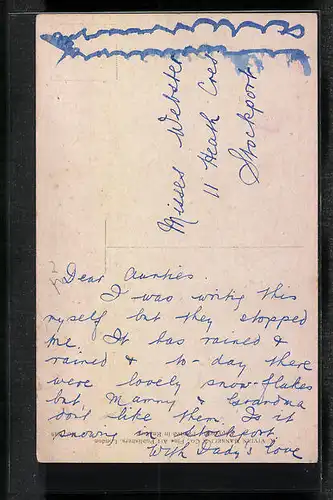 Misses Webster
11 Heath Cres
Stockport
Dear Aunties.
I was writig this
myself but they stopped
me. It has rained &
rained & to-day there
were lovely snow-flakes
but Mammy & Grandma
don't like them. Is it
snowing in Stockport
With Dady's love
VIVIAN MANSELL & Co., Fine Art Publishers, London